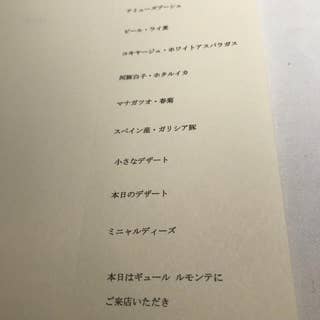 アミューズブーシュ
ビーール・ライ麦
コキヤージュ・ホワイトアスパラガス
河豚白子・ホタルイカ
マナガツオ・春菊
スペイン産・ガリシア豚
小さなデザート
本日のデザート
ミニャルディーズ
本日はギュール ルモンテに
ご来店いただき